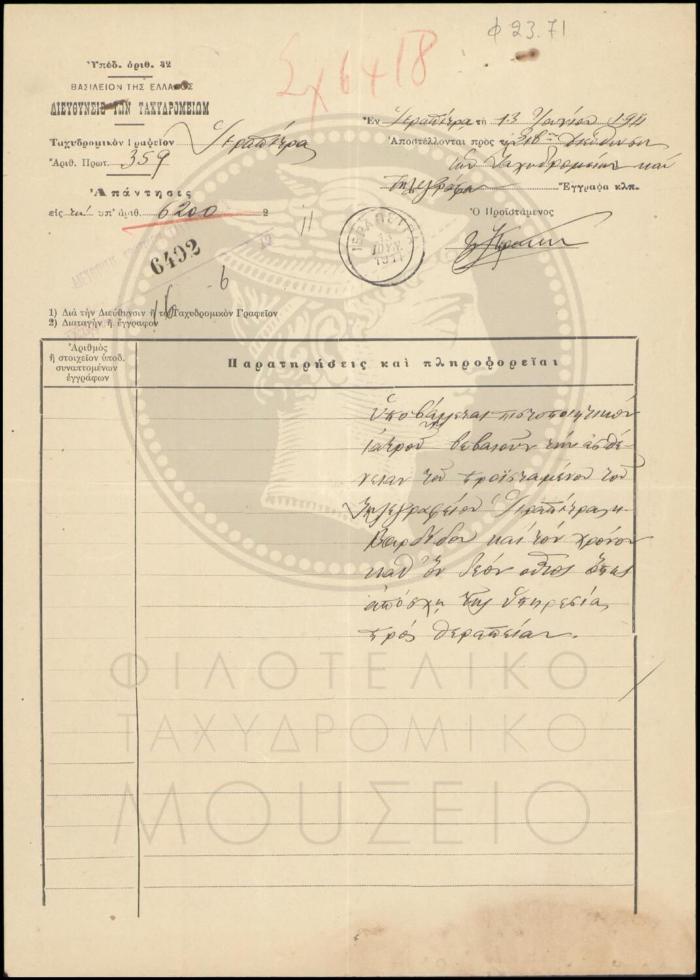 Φ 23.71
Σχ 6418
Ὑπόδ. ἀριθ. 42
ΒΑΣΙΛΕΙΟΝ ΤΗΣ ΕΛΛΑΔΟΣ
ΔΙΕΥΘΥΝΣΙΣ ΤΩΝ ΤΑΧΥΔΡΟΜΕΙΩΝ
Ταχυδρομικὸν Γραφεῖον Ἱεραπέτρας
Ἀριθ. Πρωτ. 359
Ἀπάντησις
εἰς τὴν ὑπ' ἀριθ. 6200 2
Ἐν Ἱεραπέτρα τῇ 13 Ἰουνίου 1911
Ἀποστέλλονται πρὸς τὴν Διεύθυνσιν
τῶν Ταχυδρομείων καὶ
Τηλεγράφων Ἔγγραφα κλπ.
Ὁ Προϊστάμενος
11
ΙΕΡΑΠΕΤΡΑ
13 ΙΟΥΝ 1911
6492
16 6
1) Διὰ τὴν Διεύθυνσιν ἢ τὸ Ταχυδρομικὸν Γραφεῖον
2) Διαταγὴν ἢ ἔγγραφον
Ἀριθμὸς
ἢ στοιχεῖον ὑποδ.
συναπτομένων
ἐγγράφων
Παρατηρήσεις καὶ πληροφορεῖαι
Ὑποβάλλεται πιστοποιητικὸν
ἰατροῦ βεβαιοῦν τὴν ἀσθέ
νειαν τοῦ προϊσταμένου τοῦ
Τηλεγραφείου Ἱεραπέτρας κ.
καὶ τὸν χρόνον
καθ' ὃν δέον οὗτος ὅπως
ἀπόσχῃ τῆς ὑπηρεσίας
πρὸς θεραπείαν.
ΦΙΛΟΤΕΛΙΚΟ
ΤΑΧΥΔΡΟΜΙΚΟ
ΜΟΥΣΕΙΟ